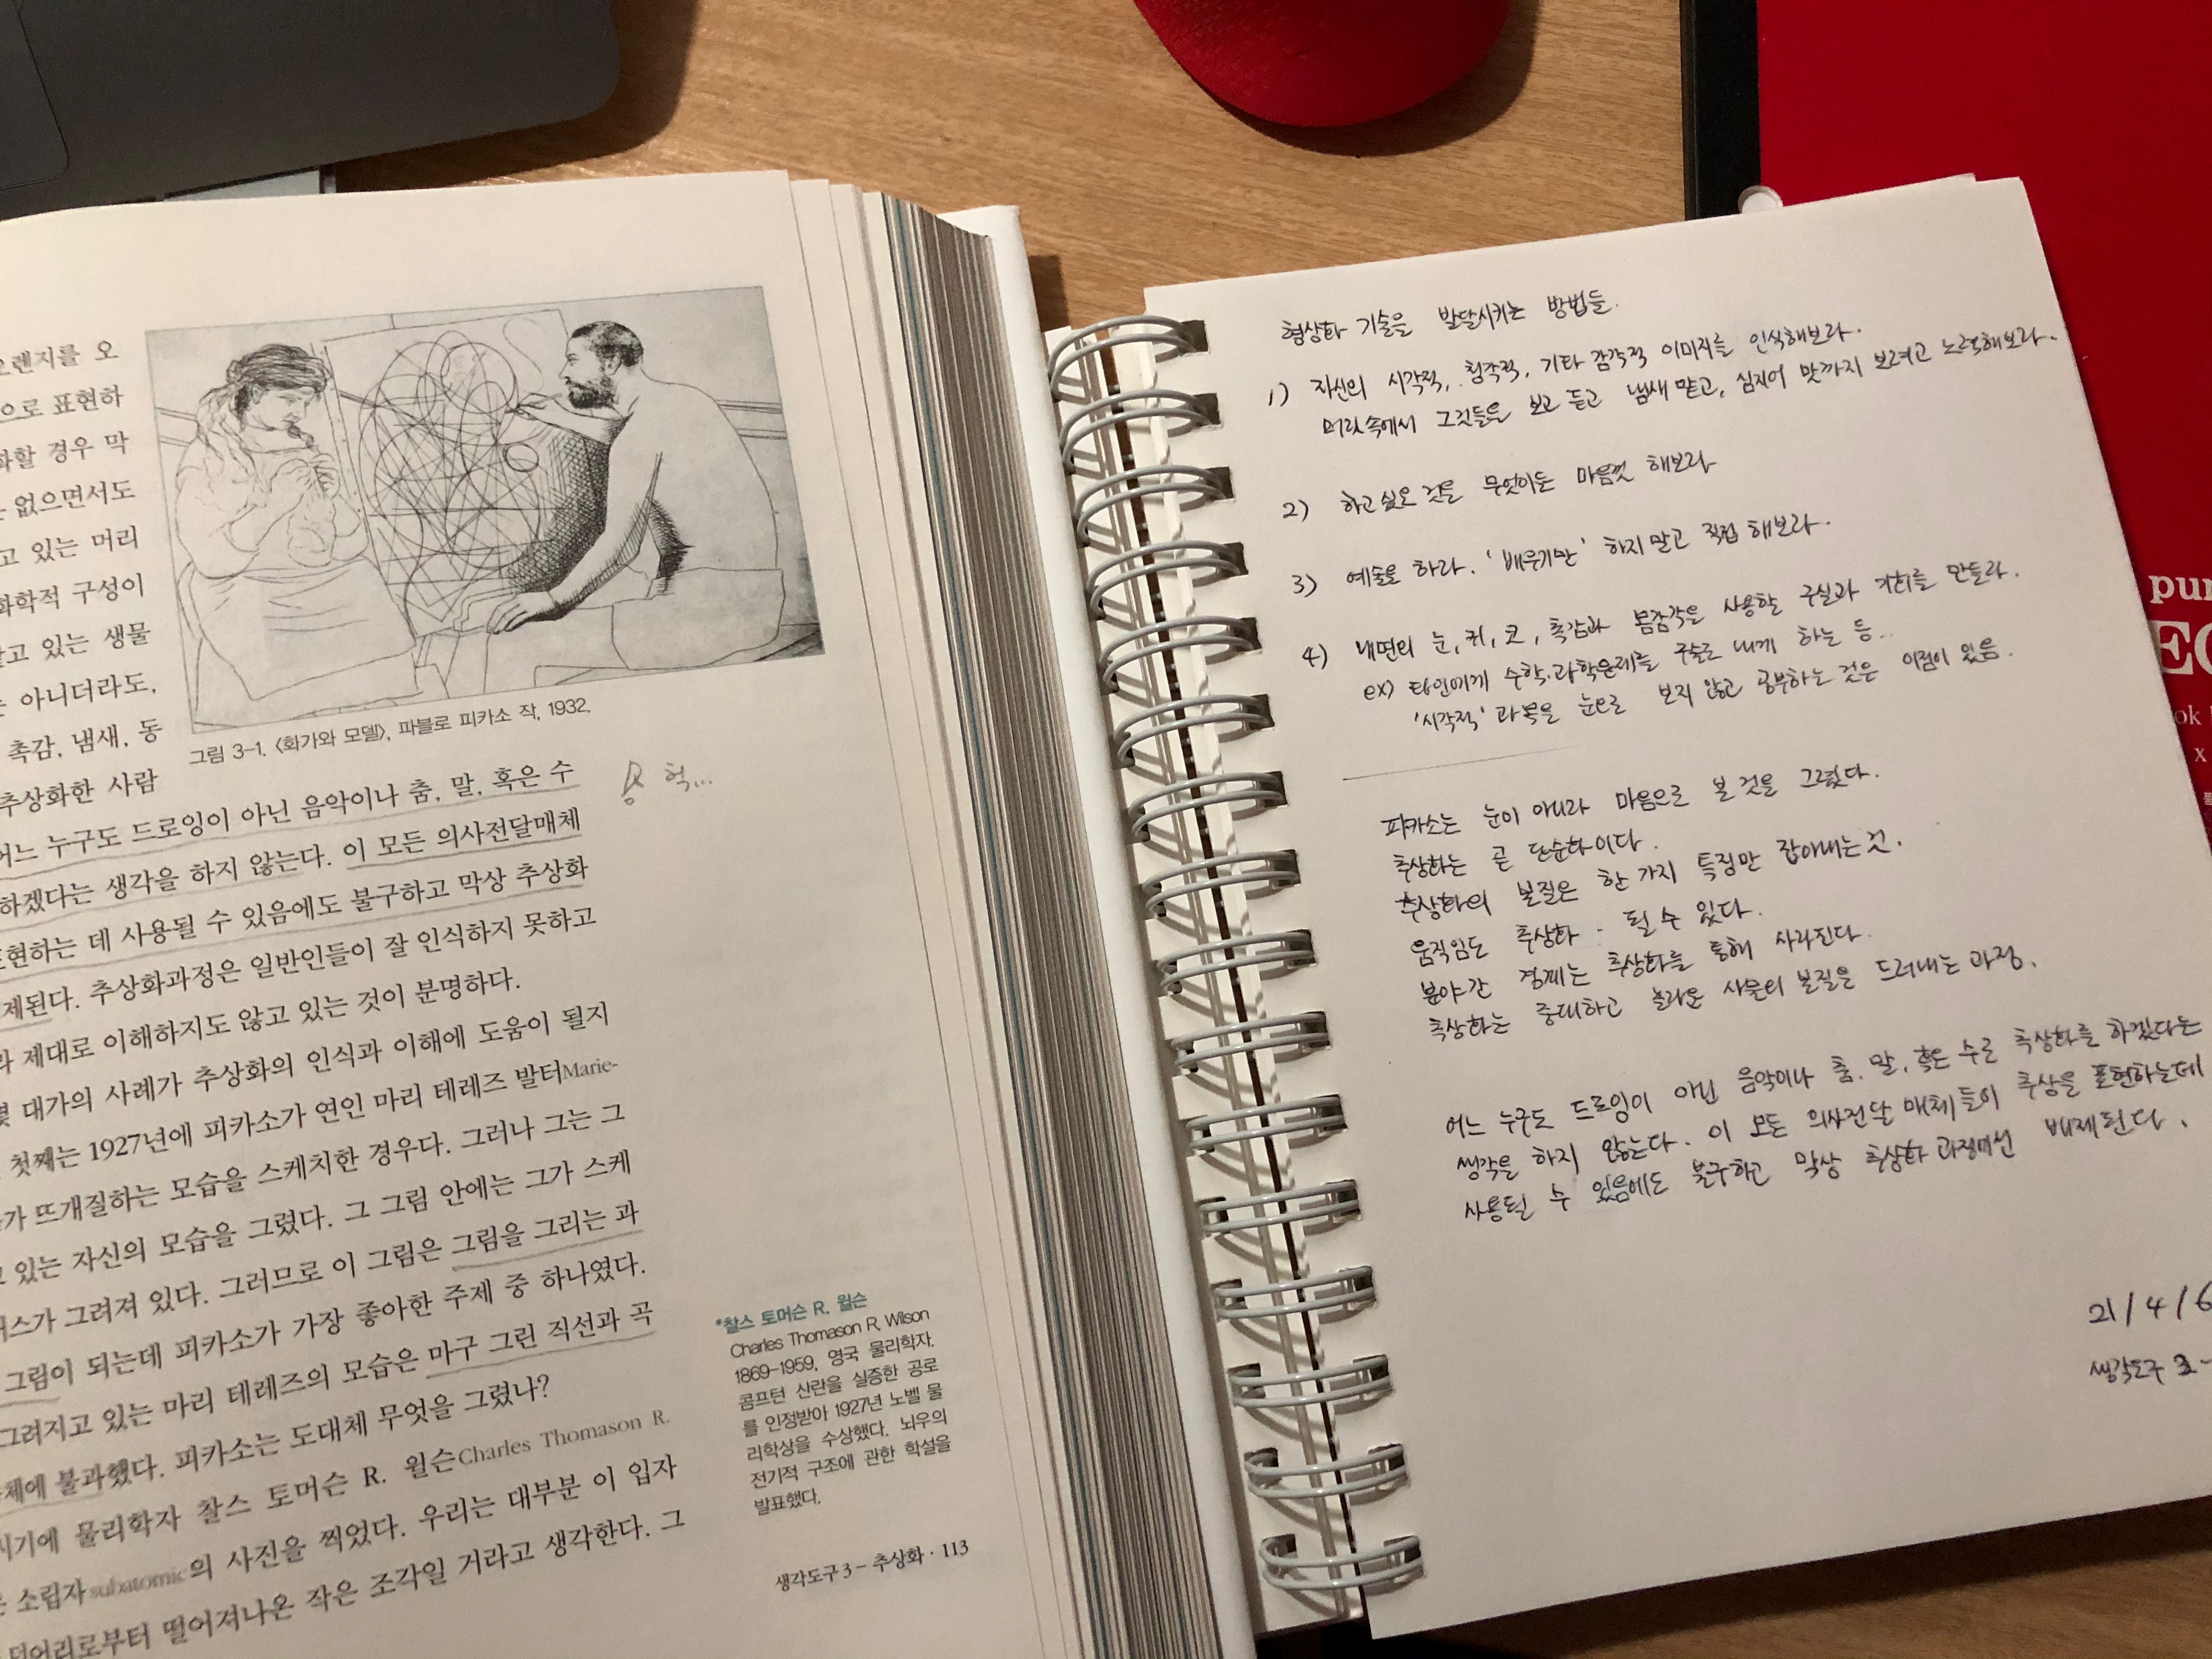 오렌지를 오
으로 표현하
화할 경우 막
없으면서도
고 있는 머리
화학적 구성이
고 있는 생물
아니더라도,
촉감, 냄새, 동
추상화한 사람
그림 3-1. 〈화가와 모델〉, 파블로 피카소 작, 1932.
어느 누구도 드로잉이 아닌 음악이나 춤, 말, 혹은 수
하겠다는 생각을 하지 않는다. 이 모든 의사전달매체
표현하는 데 사용될 수 있음에도 불구하고 막상 추상화
제된다. 추상화과정은 일반인들이 잘 인식하지 못하고
제대로 이해하지도 않고 있는 것이 분명하다.
몇 대가의 사례가 추상화의 인식과 이해에 도움이 될지
첫째는 1927년에 피카소가 연인 마리 테레즈 발터Marie-
가 뜨개질하는 모습을 스케치한 경우다. 그러나 그는 그
있는 자신의 모습을 그렸다. 그 그림 안에는 그가 스케
버스가 그려져 있다. 그러므로 이 그림은 그림을 그리는 과
그림이 되는데 피카소가 가장 좋아한 주제 중 하나였다.
그려지고 있는 마리 테레즈의 모습은 마구 그린 직선과 곡
체에 불과했다. 피카소는 도대체 무엇을 그렸나?
시기에 물리학자 찰스 토머슨 R. 윌슨Charles Thomason R.
소립자subatomic의 사진을 찍었다. 우리는 대부분 이 입자
덩어리로부터 떨어져나온 작은 조각일 거라고 생각한다. 그
헉...
*찰스 토머슨 R. 윌슨
Charles Thomason R. Wilson
1869-1959, 영국 물리학자.
콤프턴 산란을 실증한 공로
를 인정받아 1927년 노벨 물
리학상을 수상했다. 뇌우의
전기적 구조에 관한 학설을
발표했다.
생각도구 3 - 추상화 · 113
형상화 기술을 발달시키는 방법들.
1) 자신의 시각적, 청각적, 기타 감각적 이미지를 인식해보라.
머릿속에서 그것들을 보고 듣고 냄새 맡고, 심지어 맛까지 보려고 노력해보라.
2) 하고 싶은 것을 무엇이든 마음껏 해보라
3) 예술을 하라. '배우기만' 하지 말고 직접 해보라.
4) 내면의 눈, 귀, 코, 촉감과 몸감각을 사용할 구실과 기회를 만들라.
ex) 타인에게 수학·과학문제를 구술로 내게 하는 등..
'시각적' 과목을 눈으로 보지 않고 공부하는 것은 이점이 있음.
피카소는 눈이 아니라 마음으로 본 것을 그렸다.
추상화는 곧 단순화이다.
추상화의 본질은 한 가지 특징만 잡아내는 것.
움직임도 추상화 될 수 있다.
분야간 경계는 추상화를 통해 사라진다.
추상화는 중대하고 놀라운 사물의 본질을 드러내는 과정.
어느 누구도 드로잉이 아닌 음악이나 춤, 말, 혹은 수로 추상화를 하겠다는
생각을 하지 않는다. 이 모든 의사전달 매체들이 추상을 표현하는데
사용될 수 있음에도 불구하고 막상 추상화 과정에선 배제된다.
21/4/6
생각도구 3-
pur